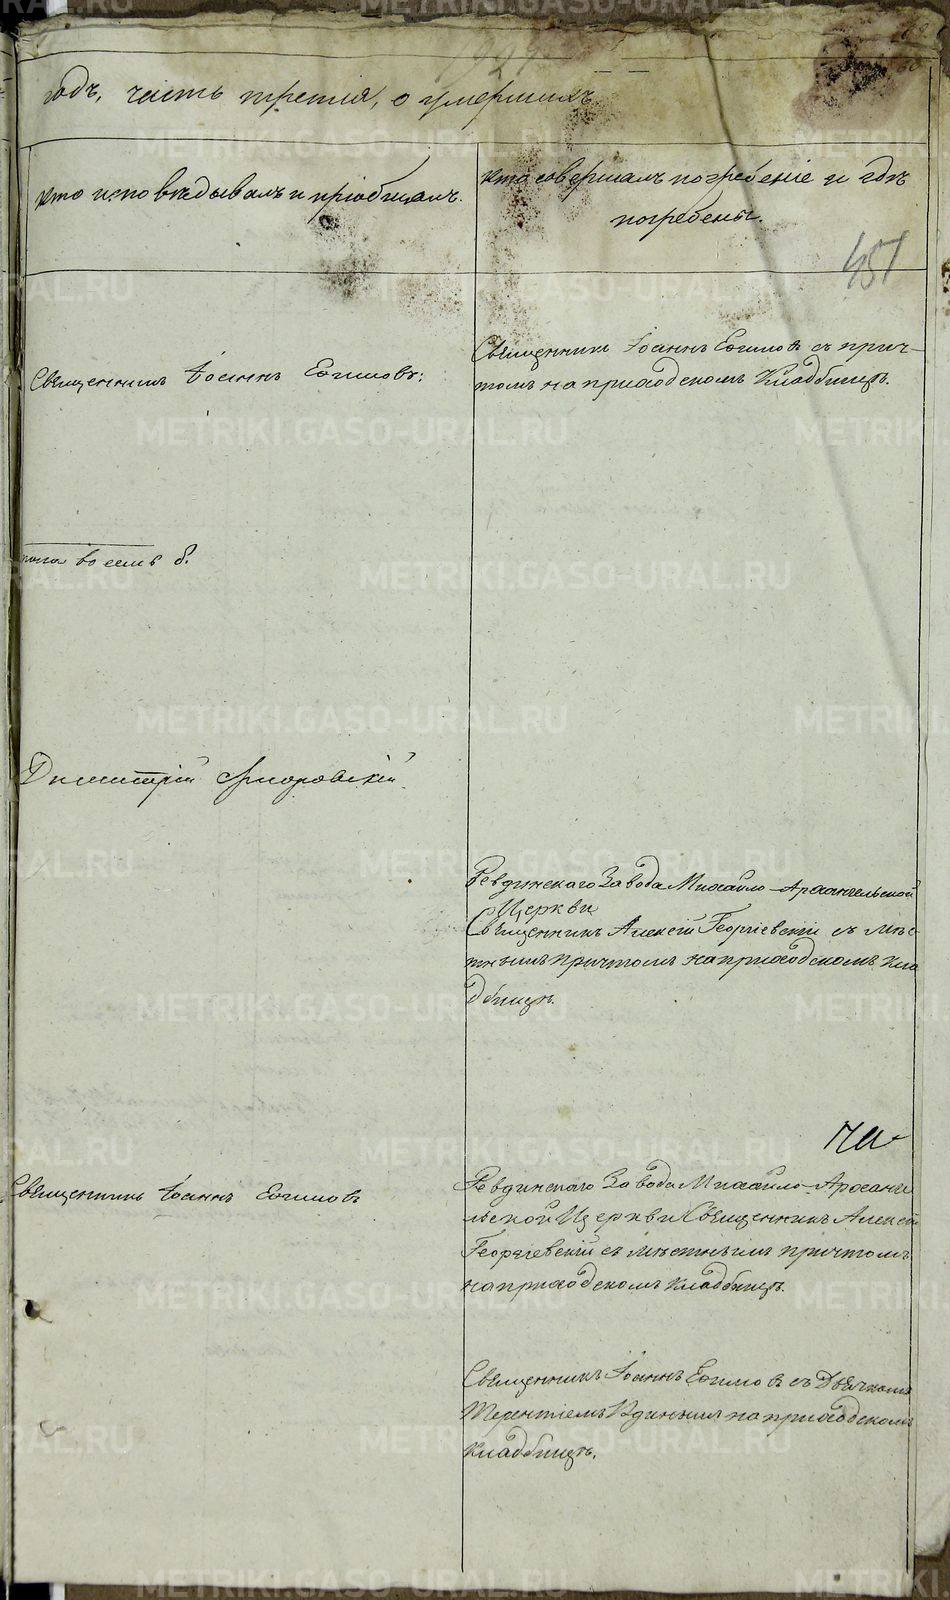 годъ, часть третія, о умершихъ.
кто исповѣдывалъ и пріобщалъ.
кто совершалъ погребеніе и гдѣ
погребены.
451
Священникъ Іоаннъ
Священникъ Іоаннъ съ прич-
томъ на приходскомъ кладбищѣ.
восемь 8.
Димитрій
Ревдинскаго Завода Михайло-Архангельской
Церкви
Священникъ Алексій Георгіевскій съ мѣс-
тнымъ причтомъ на приходскомъ кла
дбищѣ.
Священникъ Іоаннъ
Ревдинскаго Завода Михайло-Арханге
льской Церкви Священникъ Алексій
Георгіевскій съ мѣстнымъ причтомъ
на приходскомъ кладбищѣ.
Священникъ Іоаннъ съ Дьячкомъ
Терентіемъ на приходскомъ
кладбищѣ.
METRIKI.GASO-URAL.RU